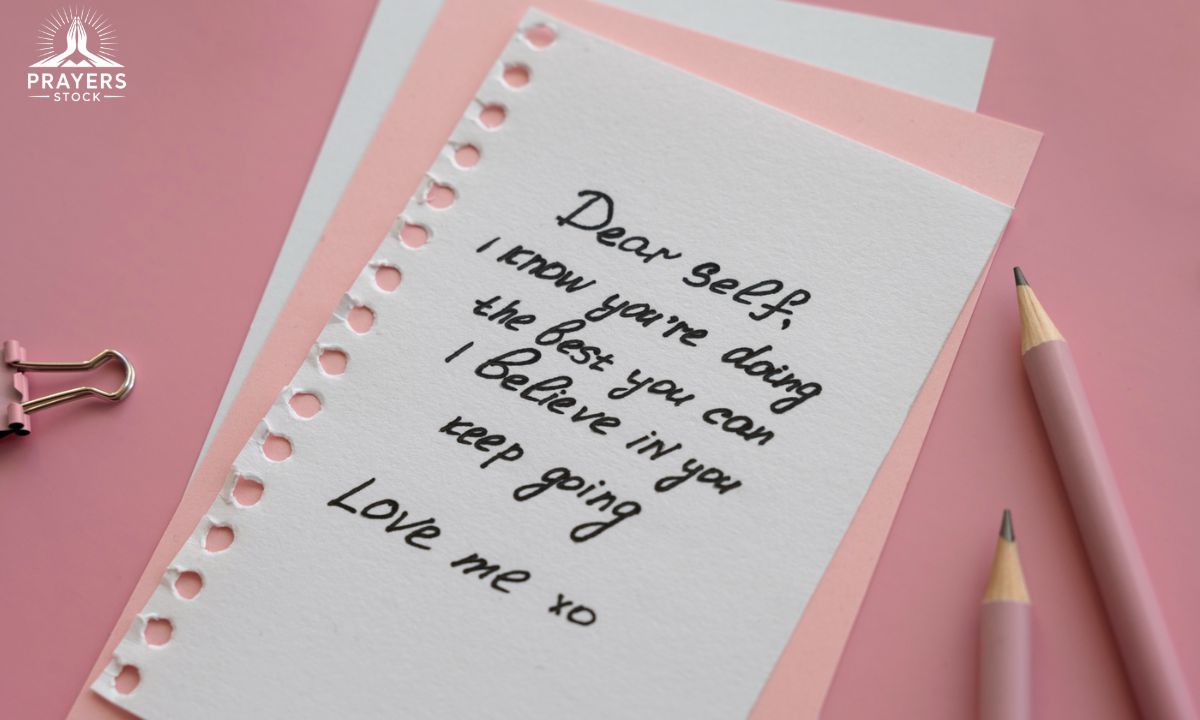 PRAYERS
STOCK
Dear self,
I know you're doing
the best you can
I believe in you
keep going
Love me xo